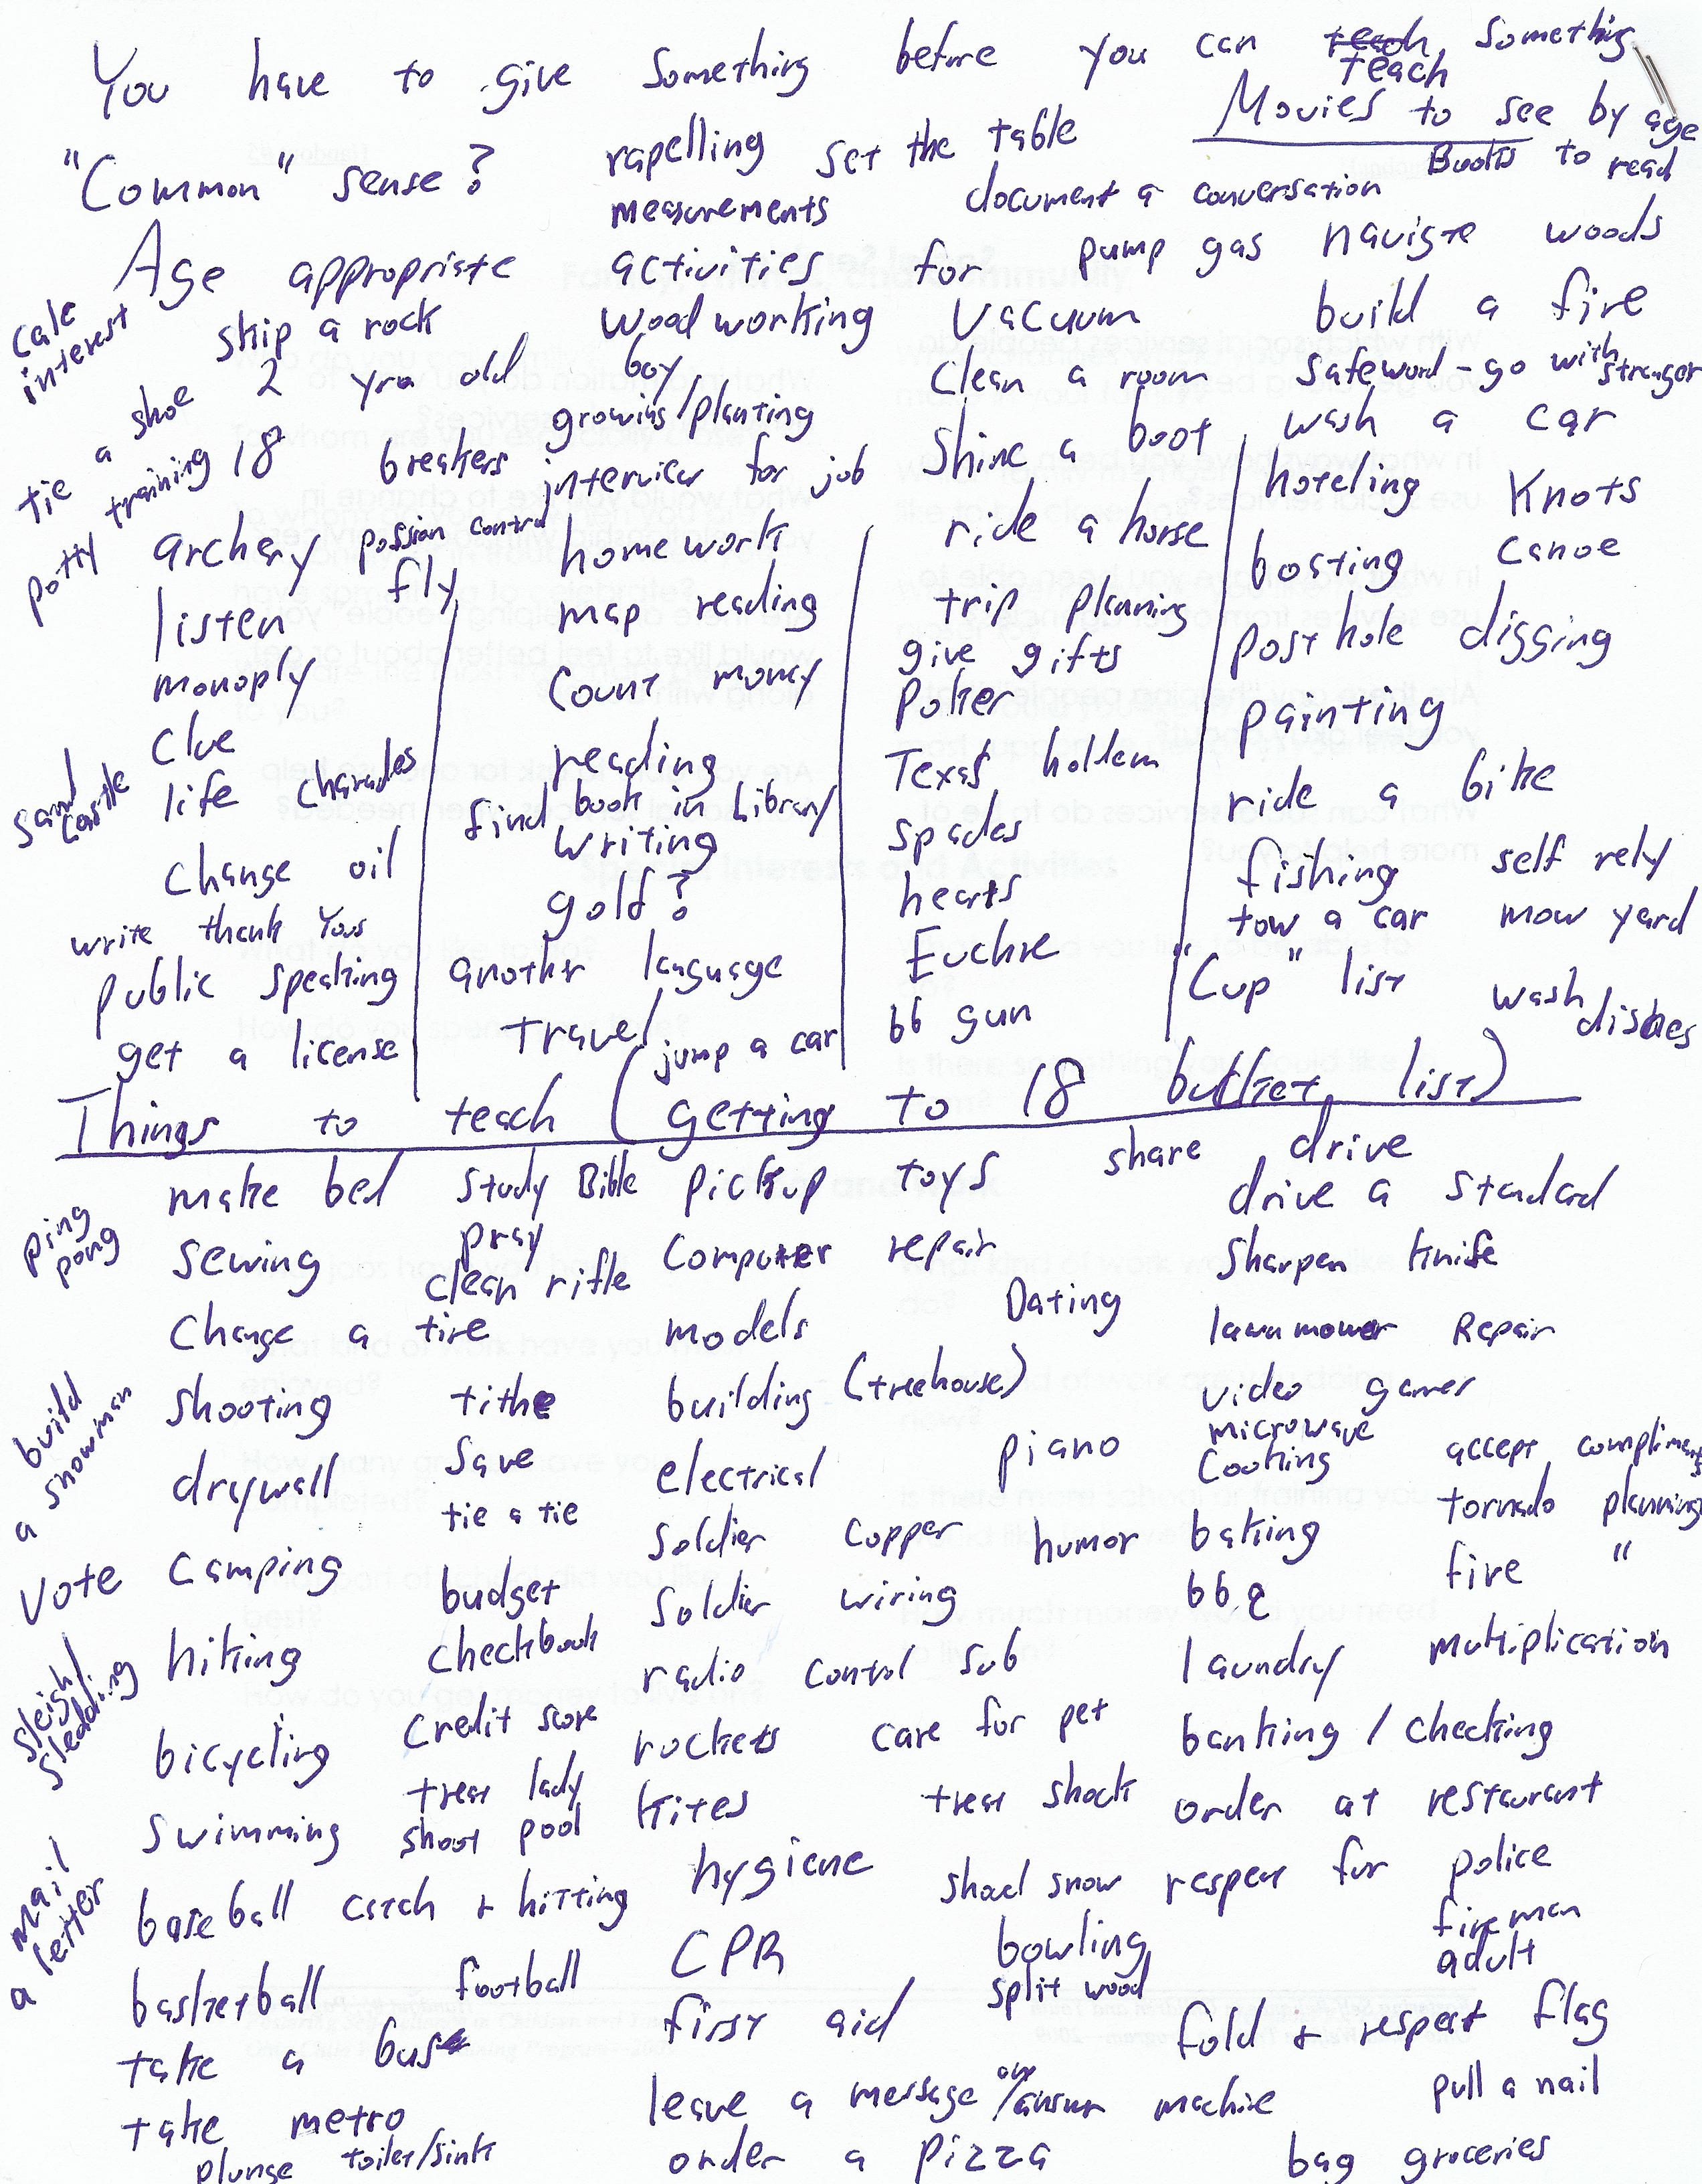 You have to give something before you can teach something
teach
Movies to see by age
"Common" sense? rapelling set the table
Books to read
measurements document a conversation
Age appropriate activities for pump gas navigte woods
calc interest
skip a rock woodworking vacuum build a fire
2 yrs old boy clean a room safeword - go with stranger
tie a shoe
growing/planting shine a boot wash a car
potty training
18 breakers interview for job hoteling knots
archery possion control homework ride a horse boating canoe
fly
listen map reading trip planning post hole digging
give gifts
monoply count money poker painting
clue reading Texas holdem ride a bike
sand castle
life charades find book in library spades fishing self rely
writing
change oil gold? hearts tow a car mow yard
write thank yous
public speaking another language Euchre "Cup" list wash dishes
get a license travel jump a car bb gun
Things to teach (getting to 18 bucket list)
make bed study Bible pickup toys share drive
drive a standard
ping pong
sewing pray computer repair sharpen knife
clean rifle
change a tire models Dating lawn mower Repair
build a snowman
shooting tithe building (treehouse) video games
microwave
drywall save electrical piano cooking accept compliments
tie a tie tornado planning
vote camping budget soldier copper humor baking fire "
soldier wiring bbq
sleigh/sledding
hiking checkbook radio control sub laundry multiplication
bicycling credit score rockets care for pet banking / checking
treat lady
swimming shoot pool kites treat shock order at restaurant
mail a letter
baseball catch + hitting hygiene shovel snow respect for police
fireman
adult
basketball football CPR bowling
split wood
take a bus first aid fold + respect flag
take metro leave a message on/answr machie pull a nail
plunge toilet/sink order a pizza bag groceries